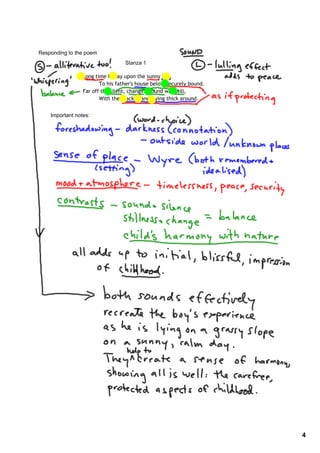 Responding to the poem
SOUND
S - alliterative too!
Stanza 1
L - lulling effect
adds to peace
'whispering'
Long time I lay upon the sunny
To his father's house below securely bound.
balance ← Far off the silent, changing sound was still,
With the black islands lying thick around
→ as if protecting
Important notes:
(word-choice)
foreshadowing - darkness (connotation)
- outside world / unknown places
Sense of place - Wyre (both remembered +
(setting) idealised)
mood + atmosphere - timelessness, peace, security
contrasts - sound + silence
stillness + change = balance
child's harmony with nature
all adds up to initial, blissful, impression
of childhood.
→ both sounds effectively
recreate the boy's experience
as he is lying on a grassy slope
on a sunny, calm day.
help to
They ^ create a sense of harmony,
showing all is well: the carefree,
protected aspects of childhood.
4